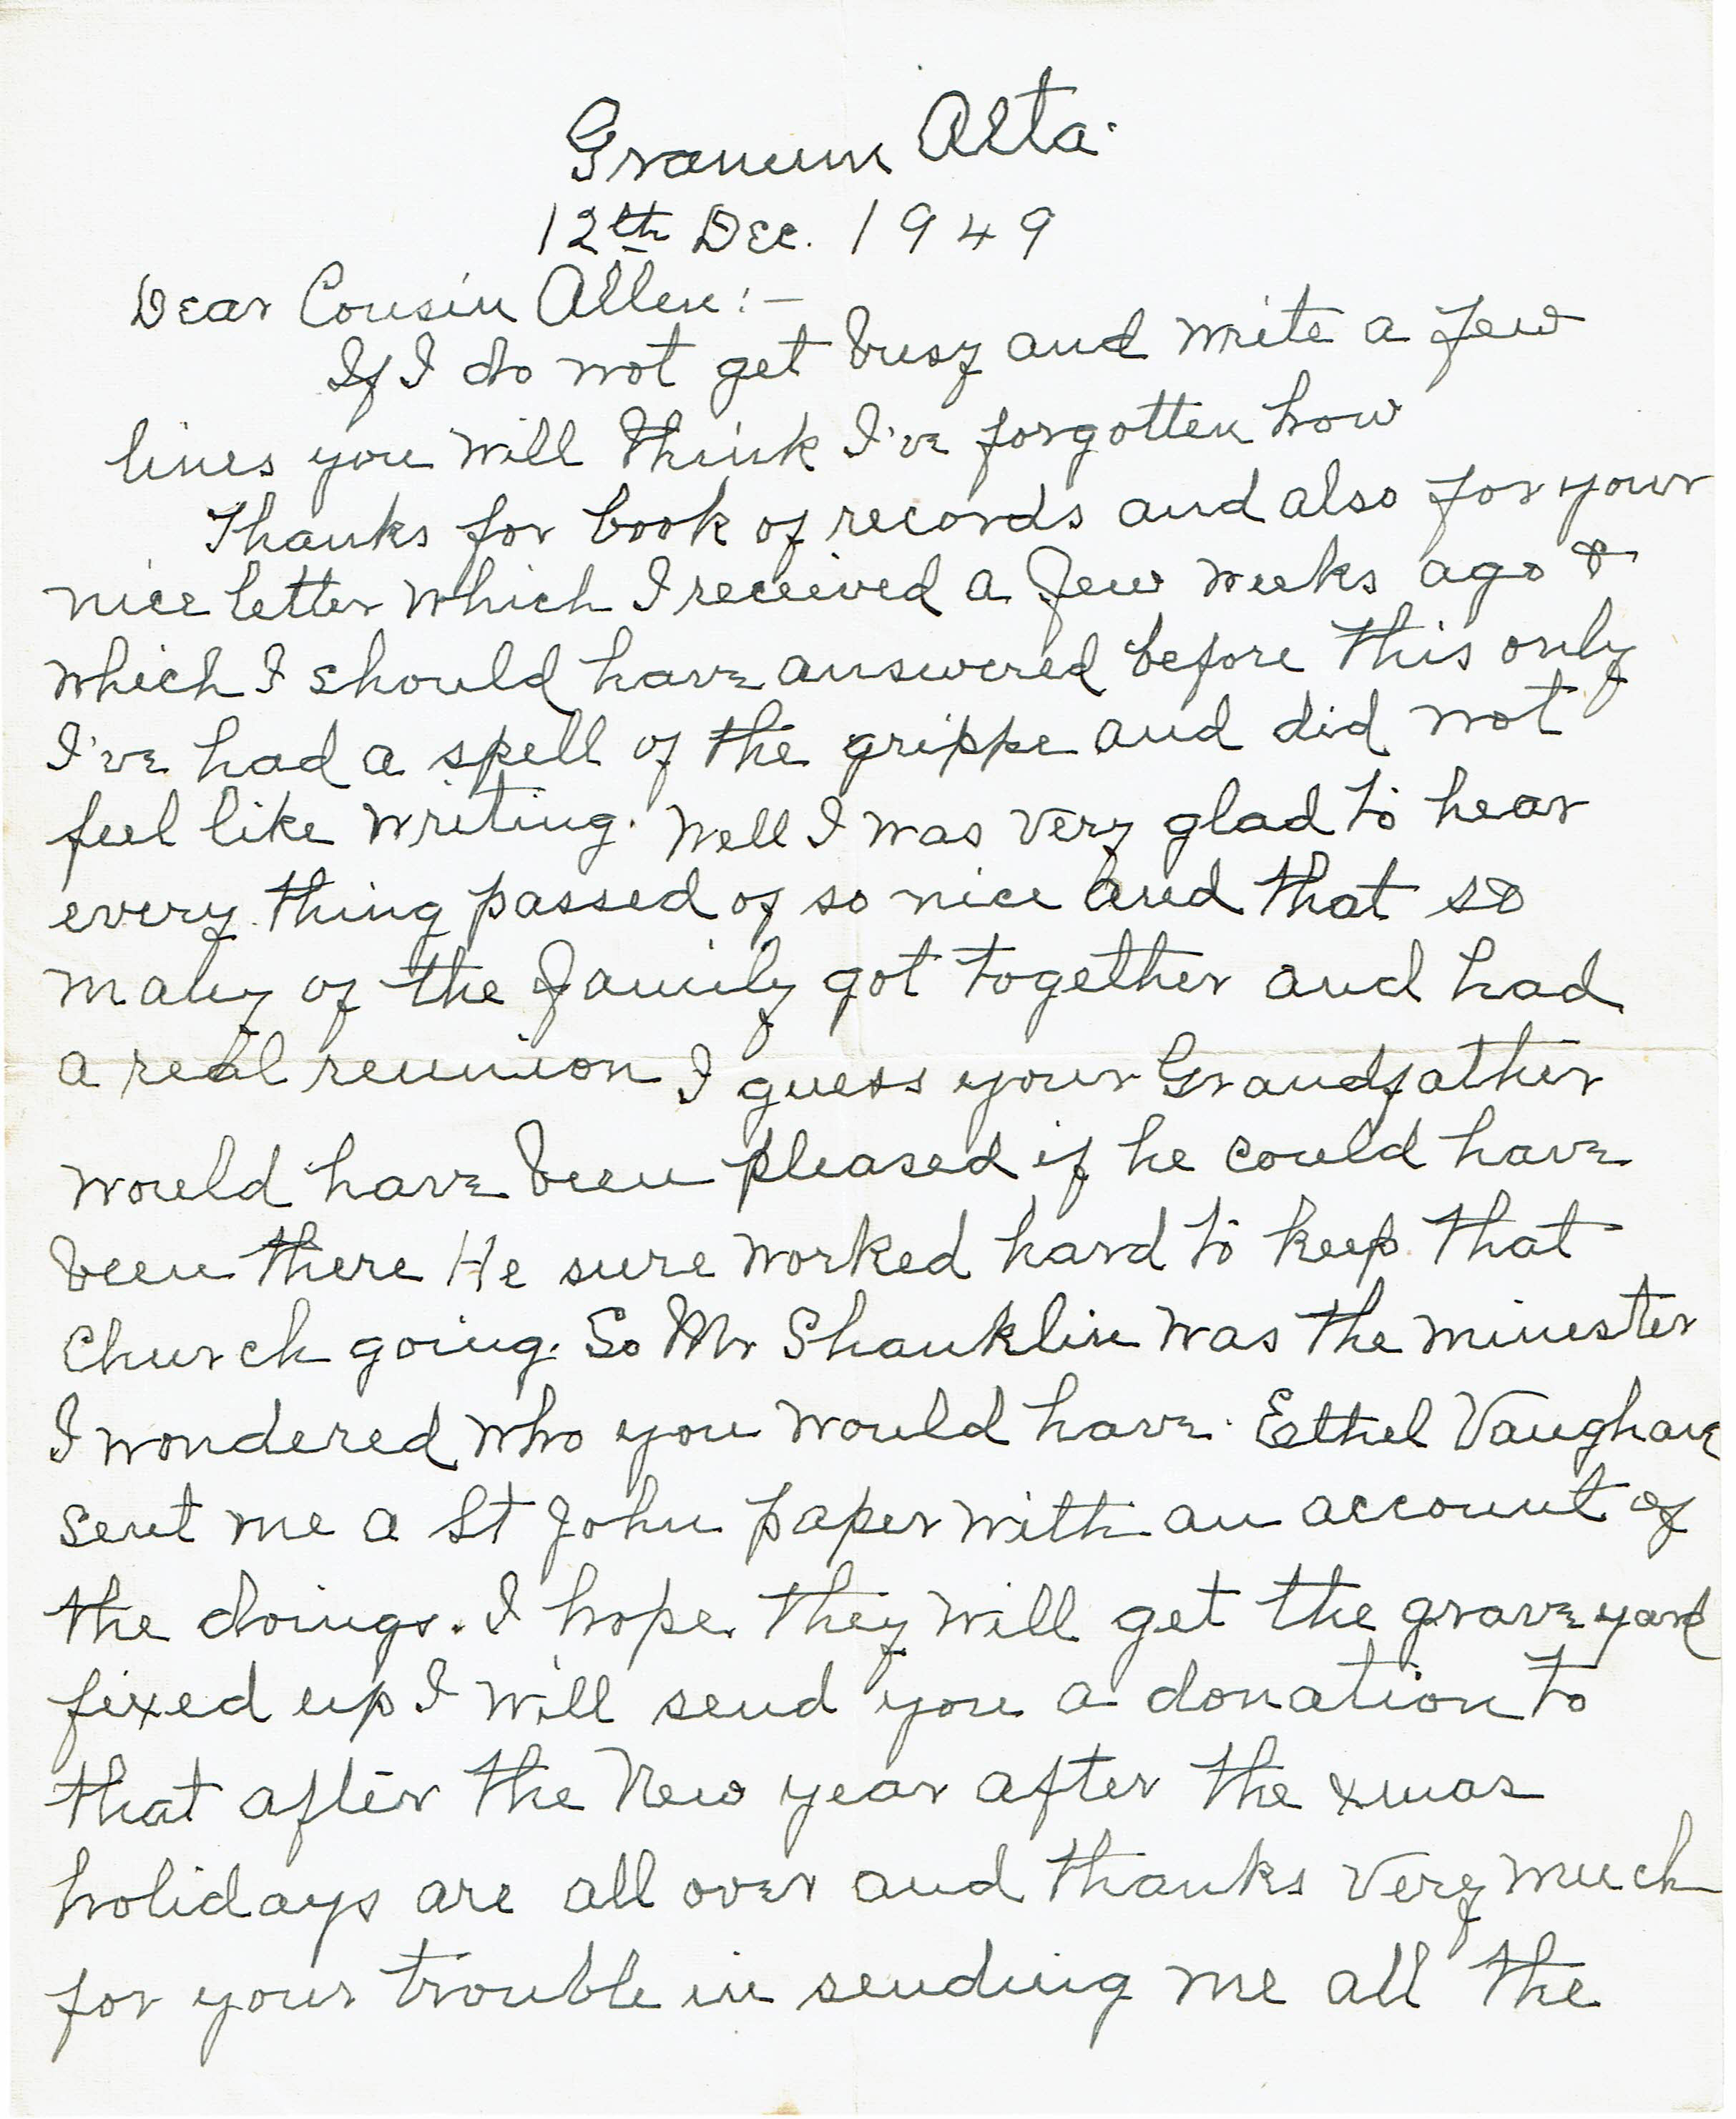 Granum Alta.
12th Dec. 1949
Dear Cousin Allen:-
If I do not get busy and write a few
lines you will think I've forgotten how
Thanks for book of records and also for your
nice letter which I received a few weeks ago &
which I should have answered before this only
I've had a spell of the grippe and did not
feel like writing. Well I was very glad to hear
every thing passed of so nice and that so
many of the family got together and had
a real reunion I guess your Grandfather
would have been pleased if he could have
been there He sure worked hard to keep that
Church going. So Mr Shanklin was the minester
I wondered who you would have. Ethel Vaughan
sent me a St John paper with an account of
the doings. I hope they will get the grave yard
fixed up I will send you a donation to
that after the New year after the xmas
holidays are all over and thanks very much
for your trouble in sending me all the